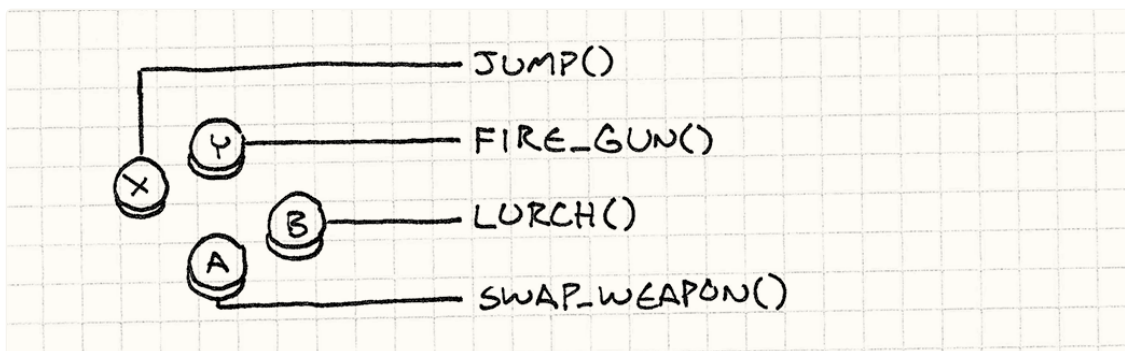 JUMP()
Y
FIRE_GUN()
X
B
LURCH()
A
SWAP_WEAPON()